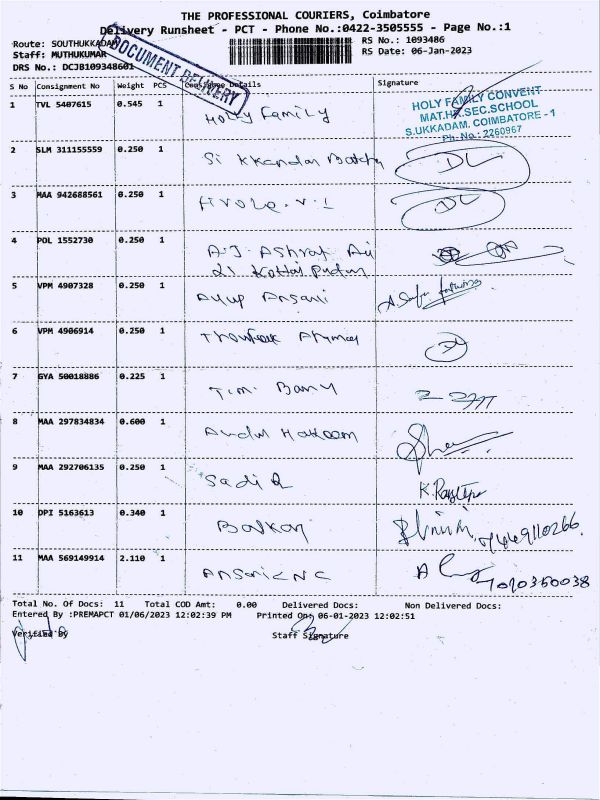 THE PROFESSIONAL COURIERS, Coimbatore
Delivery Runsheet - PCT - Phone No.:0422-3505555 - Page No.:1
Route: SOUTHUKKADAM
RS No.: 1093486
Staff: MUTHUKUMAR
RS Date: 06-Jan-2023
DRS No.: DCJB109348601
DOCUMENT DELIVERY
S No Consignment No Weight PCS Consignee Details Signature
1 TVL 5407615 0.545 1 Holly Family
HOLY FAMILY CONVENT
MAT.HR.SEC.SCHOOL
S.UKKADAM, COIMBATORE - 1
Ph. No : 2260967
2 SLM 311155559 0.250 1 DL
3 MAA 942688561 0.250 1 DL
4 POL 1552730 0.250 1 A.J. Ashraf Ali
5 VPM 4907328 0.250 1 Ayup Ansari
6 VPM 4906914 0.250 1
7 GYA 50018886 0.225 1 T.M. Banu
8 MAA 297834834 0.600 1 Abdul Hakeem
9 MAA 292706135 0.250 1 Sadiq
10 DPI 5163613 0.340 1
11 MAA 569149914 2.110 1
Total No. Of Docs: 11 Total COD Amt: 0.00 Delivered Docs: Non Delivered Docs:
Entered By :PREMAPCT 01/06/2023 12:02:39 PM Printed On: 06-01-2023 12:02:51
Verified By Staff Signature